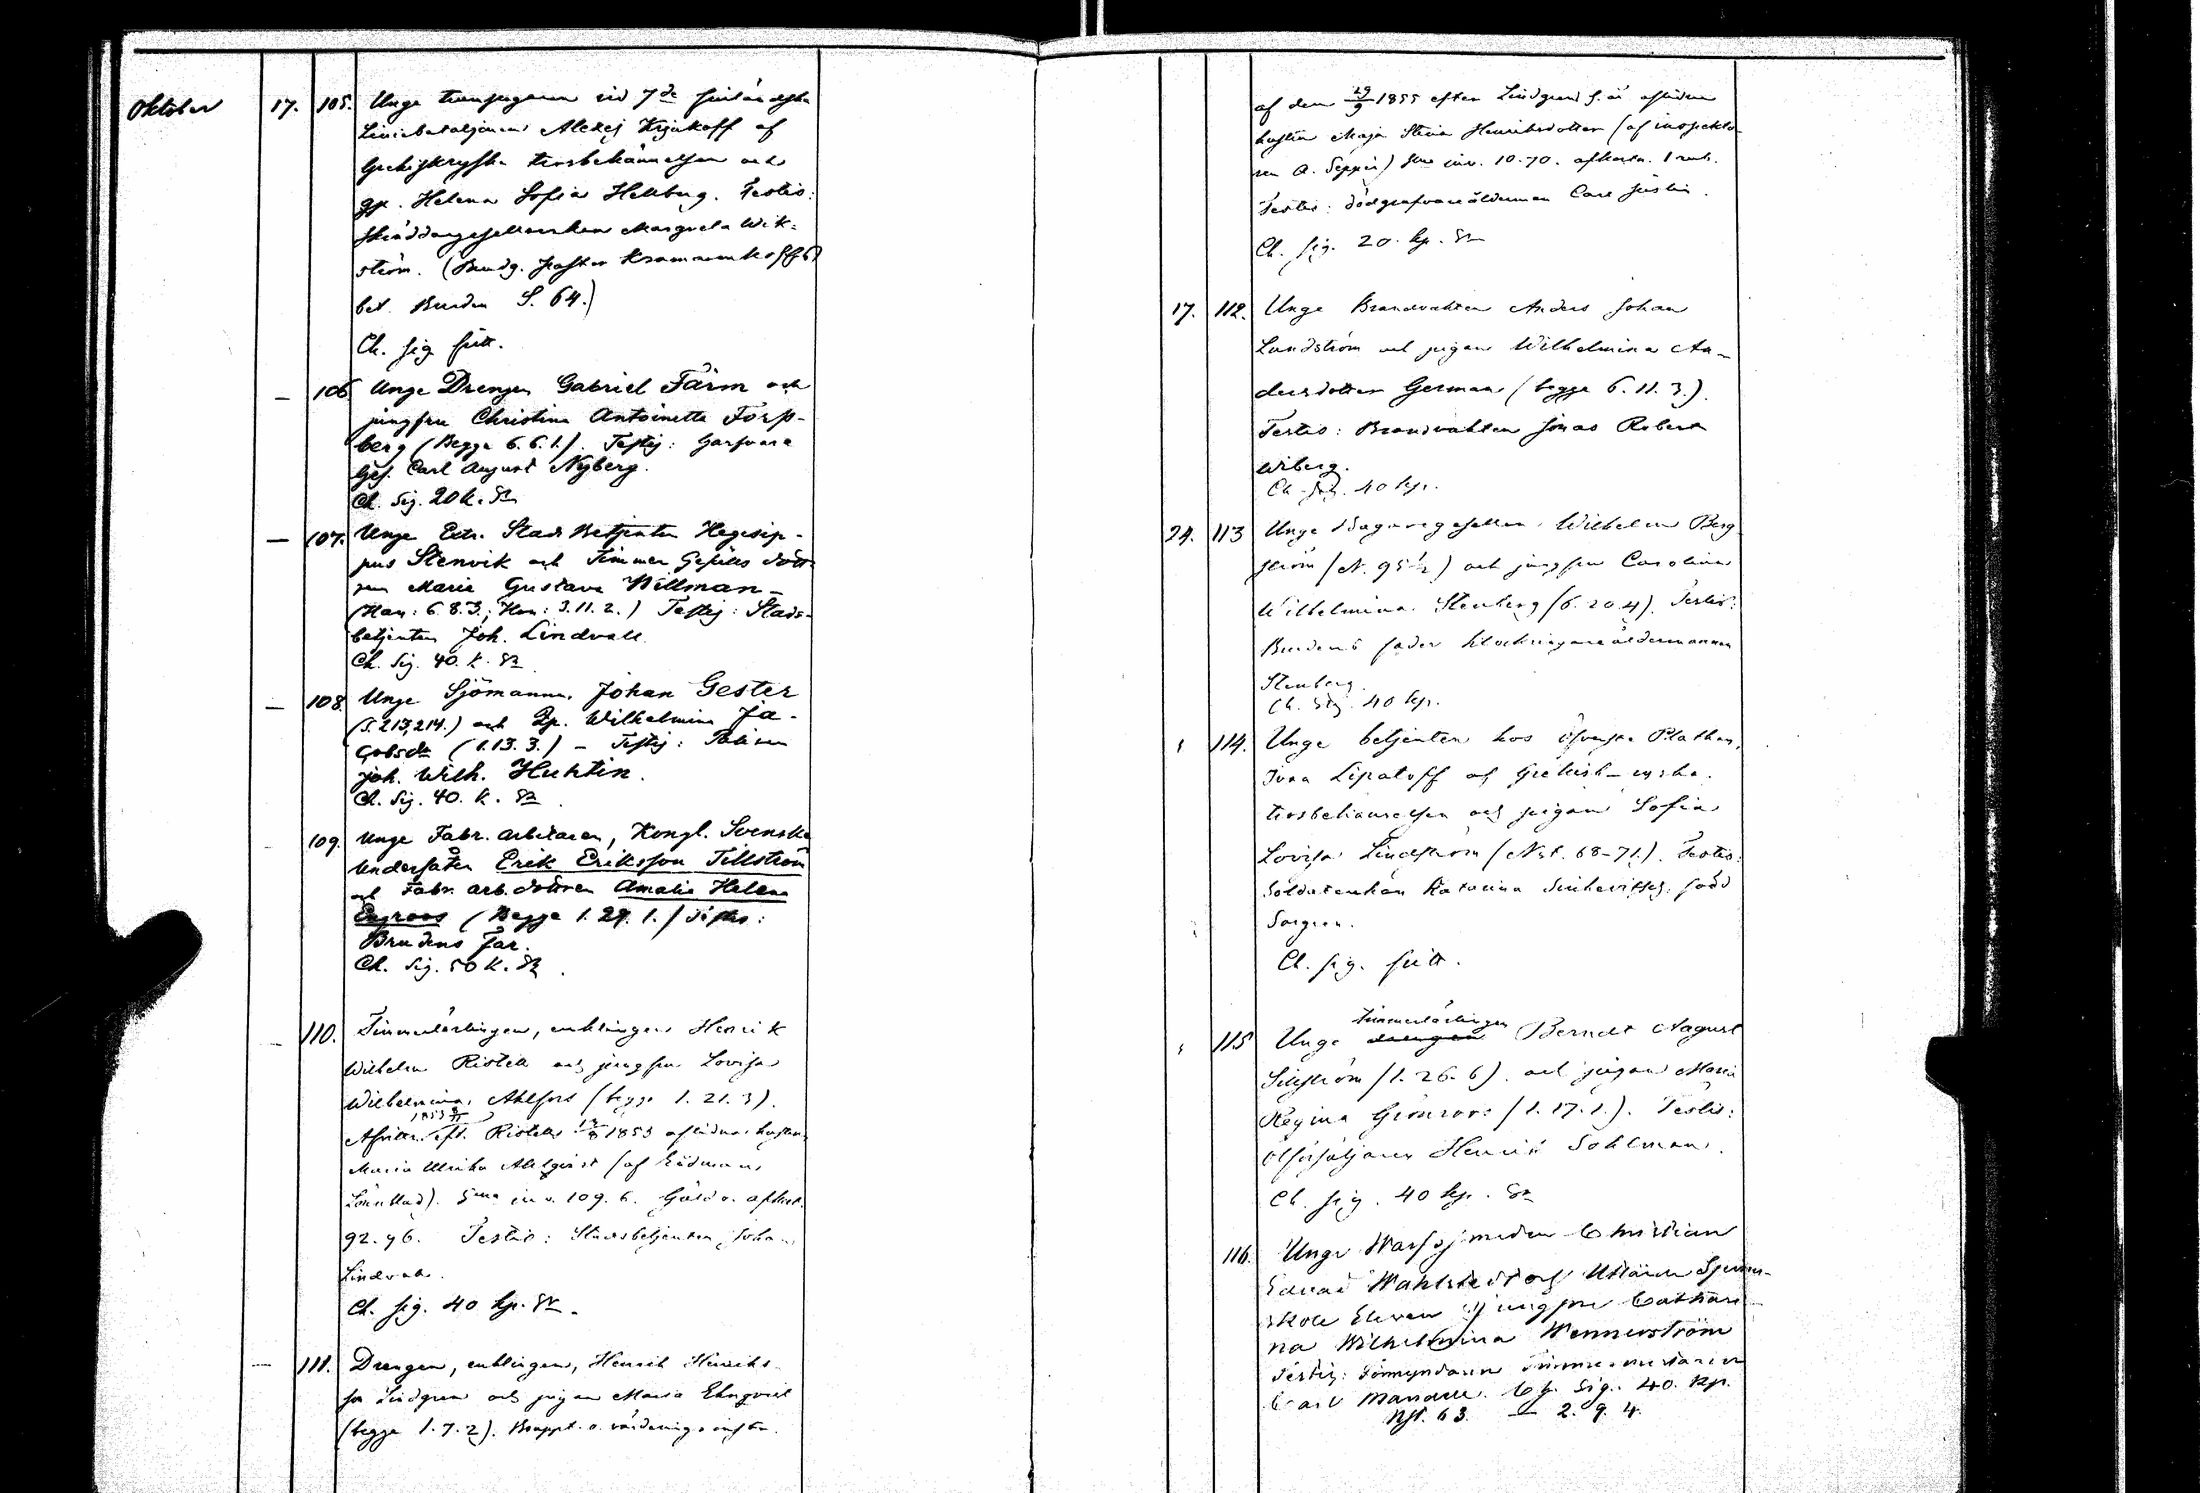 Oktober 17. 105. Unge trumslagaren vid 7de finländska
Liniebataljonen Alexej Krjukoff af
Grekiskryska trosbekännelsen och
gp. Helena Sofia Hellberg. Testis:
skräddaregesällsenkan Margreta Wik-
ström. (Brudg. pastor
bet. Bruden S. 64.)
Ch. sig. fritt.
— 106 Unge Drengen Gabriel Färm och
jungfru Christina Antoinetta Forss-
berg (Begge 6.6.1.). Testis: Garfvare
Ges. Carl August Nyberg.
Ch. Sig. 20 k. Sr
— 107. Unge Extr. Stads Betjenten Hegesip-
pus Stenvik och Timmer Gesälls dott-
ren Maria Gustava Willman
(Han: 6 8.3; Hon: 3.11.2.) Testis: Stads-
betjenten Joh. Lindvall.
Ch. Sig. 40. k. Sr
— 108. Unge Sjömannen Johan Gester
(S. 213,214.) och Pp. Wilhelmina Ja-
cobsdr (1.13.3.) – Testis:
Joh. Wilh. Huhtin.
Ch. Sig. 40. k. Sr
109. Unge Fabr. arbetaren, Kongl. Svenska
Undersåten Erik Eriksson Tillström
och Fabr. arb. dottren Amalia Helena
Engroos (Begge 1. 29. 1.) Testis:
Brudens Far.
Ch. Sig. 50 k. Sr
110. Timmerlärlingen, enklingen Henrik
Wilhelm Ristell och jungfru Lovisa
Wilhelmina Ahlfors (begge 1. 21. 3).
1853
Afvittr. eft. Ristells 1853 aflidna hustru
Maria Ulrika Ahlqvist (af Rådman
Lönnblad). Sma inv. 109. 6. Gäld o. afkort.
92. 96. Testis: Stadsbetjenten Johan
Lindvall.
Ch. sig. 40 kp. Sr.
— 111. Drengen, enklingen, Henrik Henriks-
son Lindgren och pigan Maria Ekqvist
(begge 1.7.2). Bouppt. o. värderings instr.
af den 29/9 1855 efter Lindgrens s. å. aflidna
hustru Maja Stina Henriksdotter (af inspekto-
ren A. Seppin) Sma inv. 10.70. afkortn. 1 rub.
Testis: dödgrafvareålderman Carl Justin.
Ch. sig. 20. kp. Sr
17. 112. Unge Brandvakten Anders Johan
Lundström och pigan Wilhelmina An-
dersdotter German (begge 6. 11. 3.).
Testis: Brandvakten Jonas Robert
Wiberg.
Ch. Sig. 40 kp.
24. 113 Unge Bagaregesällen Wilhelm Berg-
ström (N. 95½) och jungfru Carolina
Wilhelmina Stenberg (6. 20 4). Testis:
Brudens fader klockringareåldermannen
Stenberg.
Ch. Sig. 40 kp.
114. Unge betjenten hos Öfverste Platkan,
Ivan Lipatoff af Grekisk-ryska
trosbekännelsen och pigan Sofia
Lovisa Lindström (Nst. 68-71.). Testis:
Soldatenkan Katarina född
Ch. sig. fritt.
timmerlärlingen
115 Unge drengen Berndt August
Silfström (1. 26. 6) och pigan Maria
Regina Grönroos (1. 17. 1.). Testis:
Ölförsäljaren Henrik Sohlman.
Ch. sig. 40 kp. Sr
116. Unge Christian
Edvard Wahlstedt och
skole Eleven jungfru Cathari-
na Wilhelmina Wennerström
Testis: Förmyndaren
Carl Ch. Sig. 40. kp.
Nst. 63. — 2. 9. 4.